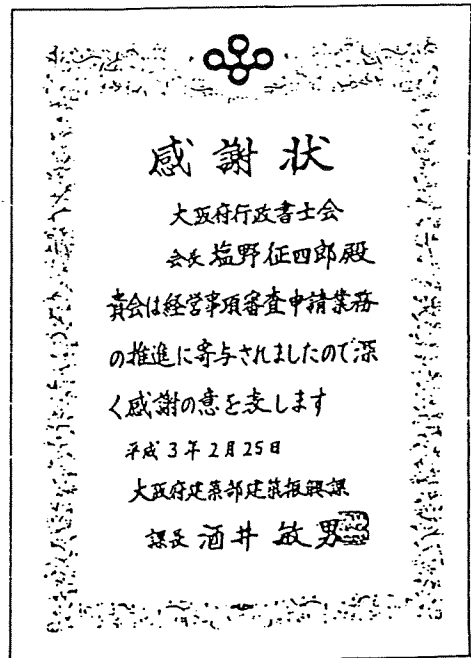 感謝状
大阪府行政書士会
会長 塩野征四郎殿
貴会は経営事項審査申請業務
の推進に寄与されましたので深
く感謝の意を表します
平成3年2月25日
大阪府建築部建築振興課
課長 酒井敏男